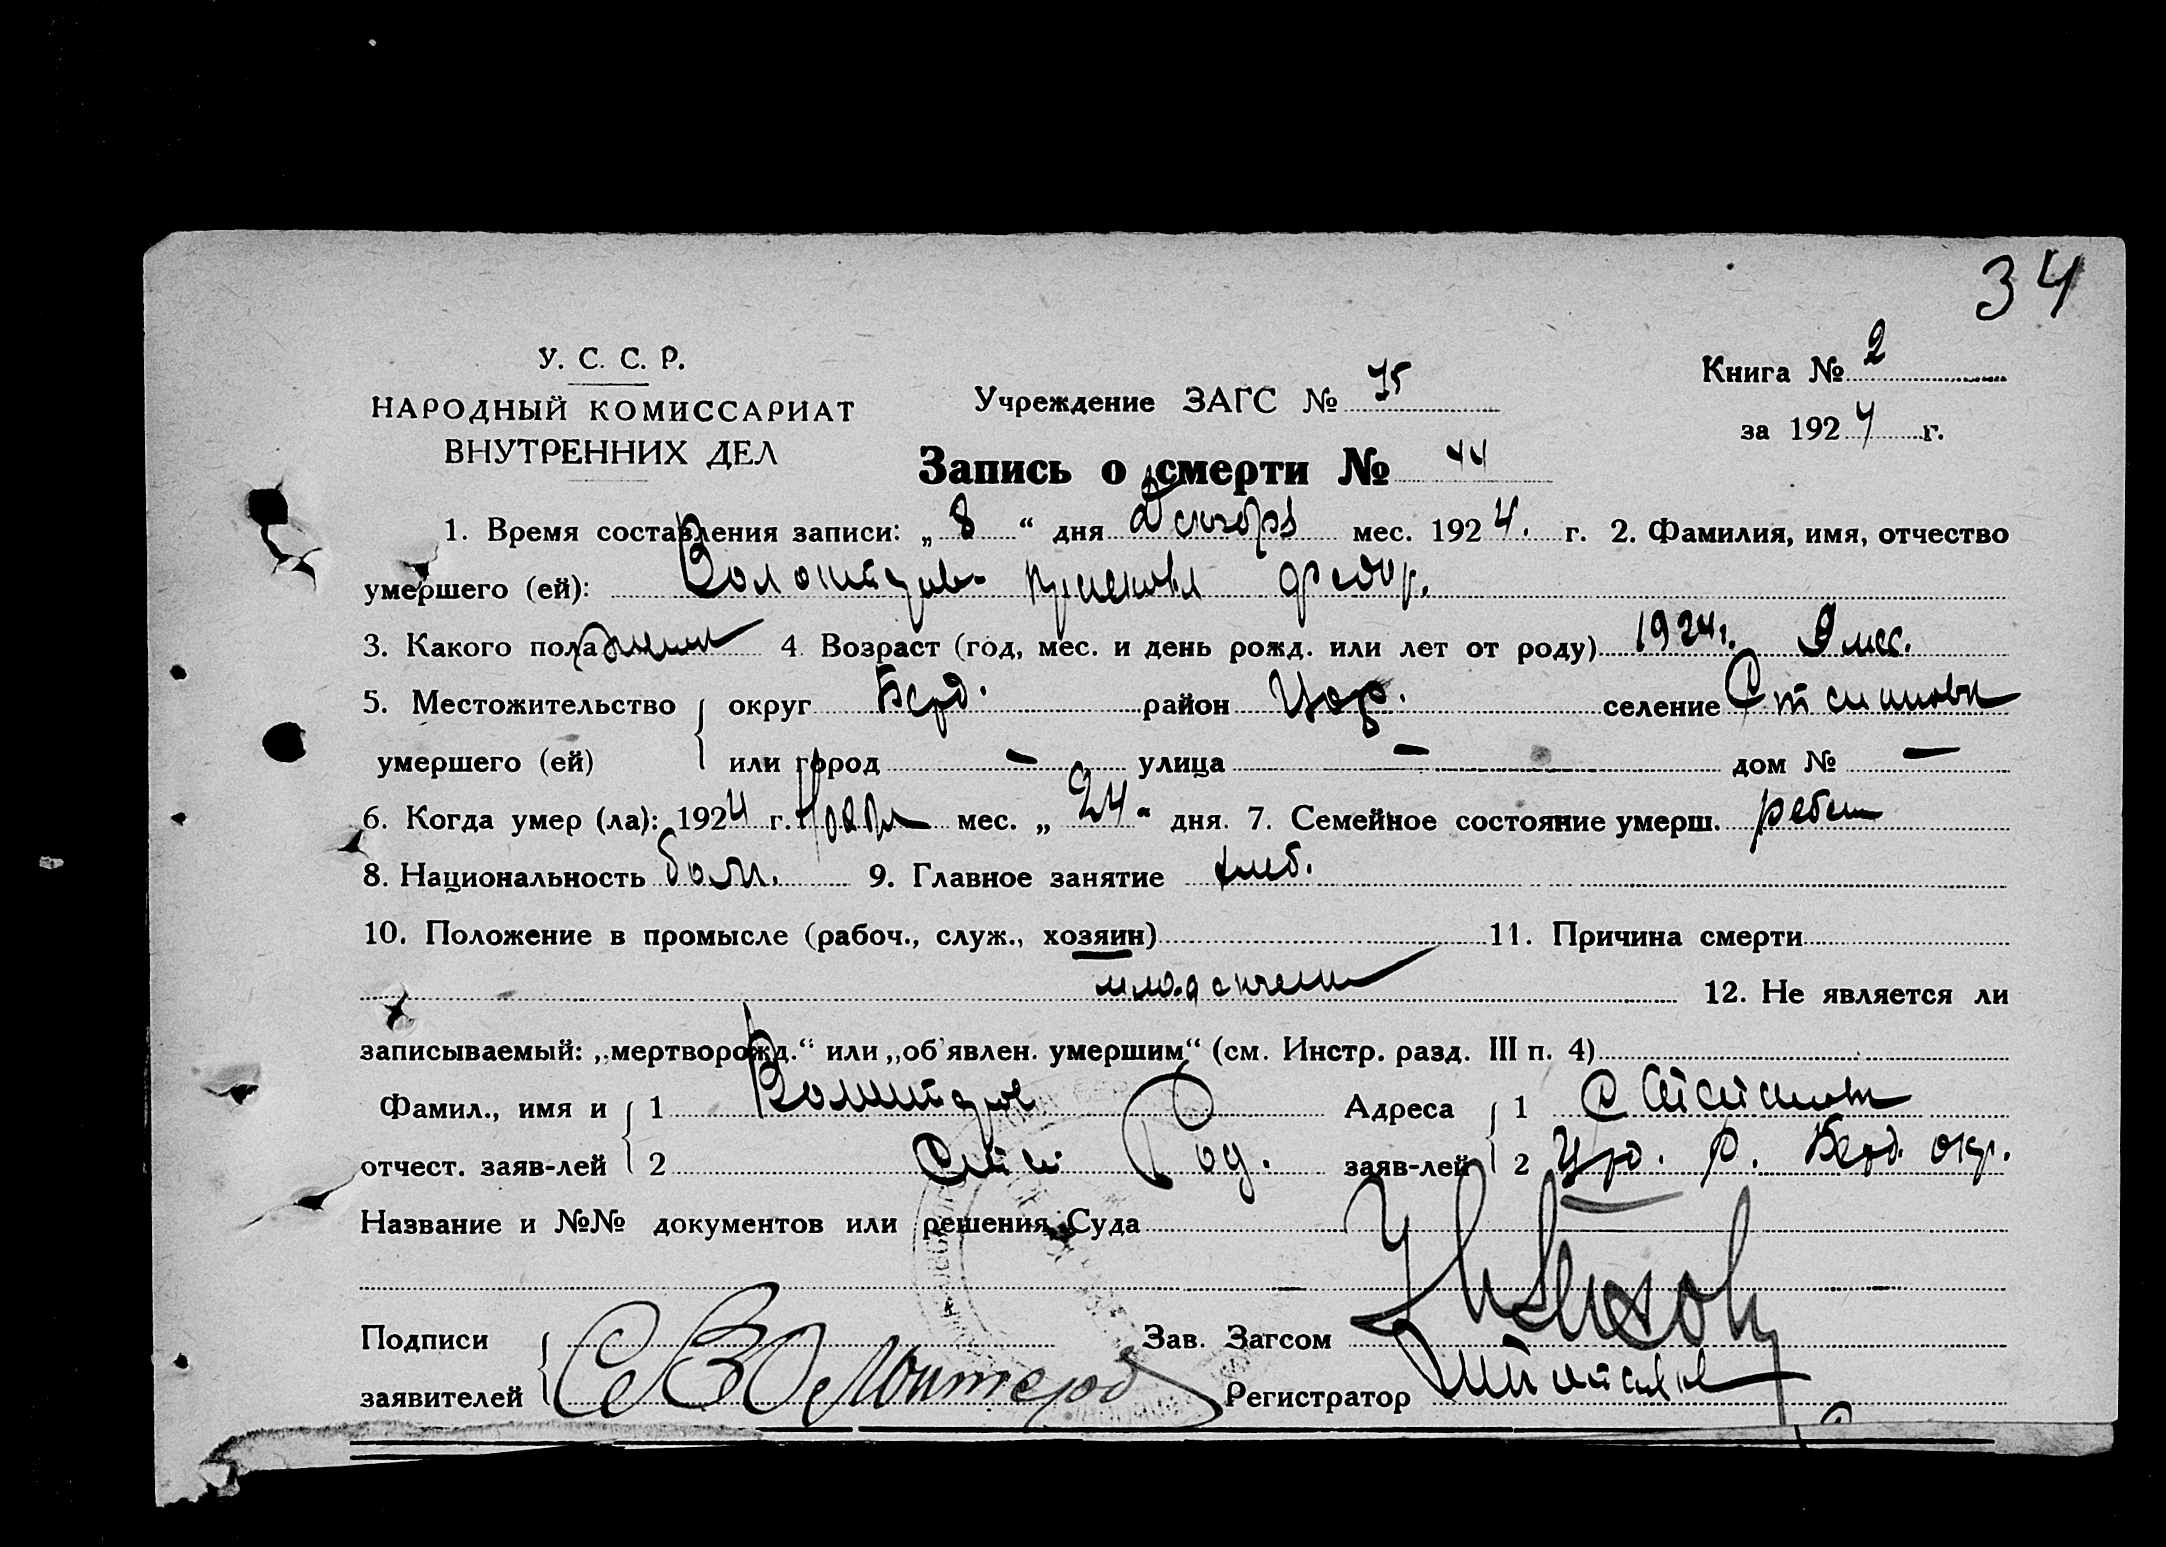 34
У. С. С. Р.
НАРОДНЫЙ КОМИССАРИАТ
ВНУТРЕННИХ ДЕЛ
Учреждение ЗАГС №
Книга № 2
за 1924 г.
Запись о смерти № 44
1. Время составления записи: „ 8 “ дня Декабря мес. 1924. г. 2. Фамилия, имя, отчество
умершего (ей): Федор.
3. Какого пола женск 4. Возраст (год, мес. и день рожд. или лет от роду) 1924 г. 9 мес.
5. Местожительство округ Берд. район Цар. селение Степановк
умершего (ей) или город – улица – дом № –
6. Когда умер (ла): 1924 г. Ноябр мес. „ 24 “ дня. 7. Семейное состояние умерш. ребен
8. Национальность болг. 9. Главное занятие хлеб.
10. Положение в промысле (рабоч., служ., хозяин) 11. Причина смерти
младенческ 12. Не является ли
записываемый: „мертворожд.“ или „об'явлен. умершим“ (см. Инстр. разд. III п. 4)
Фамил., имя и 1 Адреса 1 С Степановк
отчест. заяв-лей 2 заяв-лей 2 р. Берд. окр.
Название и №№ документов или решения Суда
Подписи Зав. Загсом
заявителей Регистратор